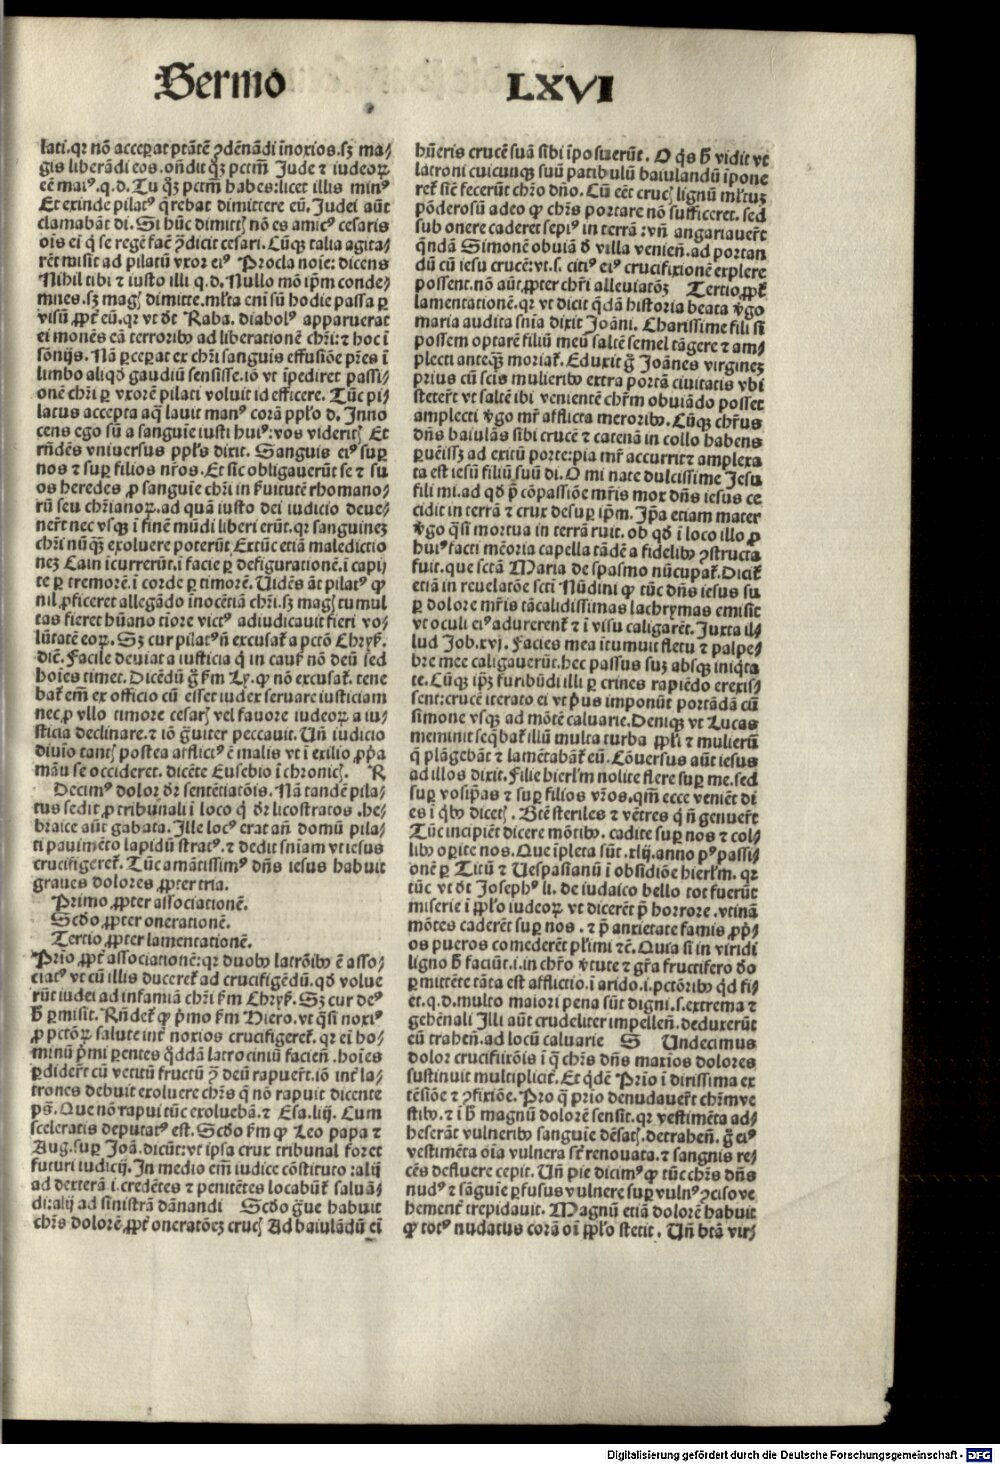 Sermo LXVI
lati.qr nō acceꝑat ptātē ꝯdēnādi īnoxios.sꝫ ma⸗
gis liberādi eos.oñdit qꝫ pctm̄ Jude ⁊ iudeoꝝ
eē maiꝰ.q.d.Tu qꝫ pctm̄ habes:licet illis minꝰ
Et exinde pilatꝰ q̄rebat dimittere eū.Judei aūt
clamabāt di.Si hūc dimittꝭ nō es amicꝰ cesaris
oīs eī q̇ se regē facit ꝯdicit cesari.Cūqꝫ talia agita⸗
rēt misit ad pilatū vxor eiꝰ Procla noīe: dicens
Nihil tibi ⁊ iusto illi q.d. Nullo mō ip̄m conde⸗
mnes.sꝫ magꝭ dimitte.ml̄ta eni sū hodie passa ꝑ
visū ꝓpt̄ eū.qr vt dt̄ Raba. diabolꝰ apparuerat
ei monēs eā terroribꝰ ad liberationē chr̄i:⁊ hoc ī
sōnijs. Nā ꝑceꝑat ex chr̄i sanguīs effusiōe pr̄es ī
limbo aliqd gaudiū sensisse.iō vt īpediret passi⸗
onē chr̄i ꝑ vxorē pilati voluit id efficere. Tūc pi⸗
latus accepta aq̄ lauit manꝰ corā pplo d. Inno
cens ego sū a sanguīe iusti huiꝰ:vos videritꝭ Et
rn̄dēs vniuersus ppls dixit. Sanguis eiꝰ suꝑ
nos ⁊ suꝑ filios nr̄os.Et sic obligauerūt se ⁊ su
os heredes ꝓ sanguīe chr̄i in ẜuitutē rhomano⸗
rū seu chr̄ianoꝝ.ad quā iusto dei iudicio deue⸗
nerūt nec vsqꝫ ī finē mūdi liberi erūt.qr sanguinez
chr̄i nūqꝫ exoluere poterūt Extūc etiā maledictio
neꝫ Cain īcurrerūt.ī facie ꝑ defigurationē.ī capi
te ꝑ tremorē.ī corde ꝑ timorē. Vidēs āt pilatꝰ ꝙ
nil ꝓficeret allegādo īnocētiā chr̄i.sꝫ magꝭ tumul
tas fieret hūano tiore victꝰ adiudicauit fieri vo⸗
lūtatē eoꝝ. Sꝫ cur pilatꝰ n̄ excusat̄ a pctō Chryẜ.
dic̄. Facile deuiat a iusticia q̇ in cauẜ nō deū sed
hoīes timet. Dicēdū g̊ ẜm Ly.ꝙ nō excusat̄. tene
bat̄ em̄ ex officio cū esset iudex seruare iusticiam
nec ꝓ vllo timore cesarꝭ vel fauore iudeoꝝ a iu⸗
sticia declinare.⁊ iō g̊uiter peccauit. Un̄ iudicio
diuīo tantꝭ postea afflictꝰ ē malis vt ī exilio ꝓp̄a
māu se occideret. dicēte Eusebio ī chronicꝭ. R
Decimꝰ dolor dr̄ sentētiatōis. Nā tandē pila⸗
tus sedit ꝓ tribunali ī loco q̇ dr̄ licostratos .he⸗
braice aūt gabata. Ille locꝰ erat añ domū pila⸗
ti pauimēto lapidū stratꝰ.⁊ dedit sn̄iam vt iesus
crucifigeret̄. Tūc amātissimꝰ dn̄s iesus habuit
graues dolores ꝓpter tria.
Primo ꝓpter associationē.
Scdo ꝓpter onerationē.
Tertio ꝓpter lamentationē.
Prio ꝓpt̄ associationē:qr duobꝰ latrōibꝰ ē asso⸗
ciatꝰ vt cū illis duceret̄ ad crucifigēdū.qd volue
rūt iudei ad infamiā chr̄i ẜm Chryẜ. Sꝫ cur deꝰ
h̄ ꝑmisit. Rn̄det̄ ꝙ p̄mo ẜm Hiero.vt q̄si noxiꝰ
ꝓ pctōꝝ salute int̄ noxios crucifigeret̄. qr ei ho⸗
minū p̄mi ꝑentes q̄ddā latrociniū facien̄. hoīes
ꝑdiderūt cū vetitū fructū ꝯ deū rapuerūt.iō int̄ la⸗
trones debuit exoluere chr̄s q̄ nō rapuit dicente
pẜ. Que nō rapui tūc exoluebā.⁊ Esa.liij. Cum
sceleratis deputatꝰ est. Scdo ẜm ꝙ Leo papa ⁊
Aug.suꝑ Joā.dicūt:vt ipsa crux tribunal foret
futuri iudicij. In medio em̄ iudice cōstituto :alij
ad dexterā ī.credētes ⁊ penitētes locabūt̄ saluā⸗
di:alij ad sinistrā dānandi Scdo g̊ue habuit
chr̄s dolorē ꝓpt̄ oneratōeꝫ crucꝭ Ad baiulādū eī
hūeris crucē suā sibi īposuerūt. O q̇s h̄ vidit vt
latroni cuicunqꝫ suū patibulū baiulandū īpone
ret̄ sic̄ fecerūt chr̄o dn̄o. Cū eēt crucꝭ lignū ml̄tuꝫ
pōderosū adeo ꝙ chr̄s portare nō sufficeret. sed
sub onere caderet sepiꝰ in terrā :vn̄ angariauerūt
q̄ndā Simonē obuiā d̄ villa venien̄.ad portan
dū cū iesu crucē:vt.s. citiꝰ eiꝰ crucifixionē explere
possent.nō aūt ꝓpter chr̄i alleuiatōeꝫ Tertio ꝓpt̄
lamentationē.qr vt dicit q̄dā historia beata v̄go
maria audita sn̄ia dixit Joāni. Charissime fili si
possem optarē filiū meū saltē semel tāgere ⁊ am⸗
plecti anteqꝫ moriat̄. Eduxit g̊ Joānes virgineꝫ
prius cū scīs mulieribꝰ extra portā ciuitatis vbi
steterūt vt saltē ibi venientē chr̄m obuiādo posset
amplecti v̄go mr̄ afflicta meroribꝰ. Cūqꝫ chr̄us
dn̄s baiulās sibi crucē ⁊ catenā in collo habens
ꝑuēisꝫ ad exitū porte:pia mr̄ accurrit ⁊ amplexa
ta est iesū filiū suū di.O mi nate dulcissime Jesu
fili mi.ad qd p̄ cōpassiōe mr̄is mox dn̄s iesus ce
cidit in terrā ⁊ crux desuꝑ ip̄m. Ip̄a etiam mater
v̄go q̄si mortua in terrā ruit. ob qd ī loco illo ꝓ
huiꝰ facti mēoria capella tādē a fidelibꝰ ꝯstructa
fuit.que sctā Maria de spasmo nūcupat̄.Dicit̄
etiā in reuelatōe scti Nūdini ꝙ tūc dn̄s iesus su
ꝑ dolore mr̄is tā calidissimas lachrymas emisit
vt oculi eiꝰ adurerent̄ ⁊ ī visu caligarēt. Juxta il⸗
lud Job.xvj. Facies mea itumuit fletu ⁊ palpe⸗
bre mee caligauerūt.hec passus suꝫ absqꝫ iniq̇ta
te.Cūqꝫ ip̄ꝫ furibūdi illi ꝑ crines rapiēdo erexis⸗
sent:crucē iterato ei vt p̄us imponūt portādā cū
simone vsqꝫ ad mōtē caluarie.Deniqꝫ vt Lucas
meminit seq̄bat̄ illū multa turba ppli ⁊ mulierū
q̄ plāgebāt ⁊ lamētabāt̄ eū. Cōuersus aūt iesus
ad illos dixit. Filie hierlm̄ nolite flere suꝑ me.sed
suꝑ vosip̄as ⁊ suꝑ filios vr̄os.qm̄ ecce veniēt di
es ī q̇bꝰ dicetꝭ. Btē steriles ⁊ vētres q̄ n̄ genuerūt
Tūc incipiēt dicere mōtibꝰ. cadite suꝑ nos ⁊ col⸗
libꝰ oꝑite nos. Que īpleta sūt .xlij.anno pꝰ passi⸗
onē ꝑ Titū ⁊ Uespasianū ī obsidiōe hierlm̄. qr
tūc vt dt̄ Josephꝰ li. de iudaico bello tot fuerūt
miserie ī pplo iudeoꝝ vt dicerēt p̄ horrore .vtinā
mōtes caderēt suꝑ nos .⁊ p̄ anxietate famis ꝓp̄i⸗
os pueros comederēt pl̄imi ⁊c̄. Quia si in viridi
ligno h̄ faciūt.i.in chr̄o v̄tute ⁊ gr̄a fructifero do
ꝑmittēte tāta est afflictio.ī arido.i.pctōribꝰ qd fi⸗
et.q.d.multo maiori pena sūt digni.s.extrema ⁊
gehēnali Illi aūt crudeliter impellen̄.deduxerūt
eū trahen̄.ad locū caluarie S Undecimus
dolor crucifixōis ī q̄ chr̄s dn̄s maxīos dolores
sustinuit multiplicit̄. Et q̇dē Prīo ī dirissima ex
tēsiōe ⁊ ꝯfixiōe. Pro q̄ prio denudauerūt chr̄m ve
stibꝰ.⁊ ī h̄ magnū dolorē sensit.qr vestimēta ad⸗
heserāt vulneribꝰ sanguīe dēsatꝭ.detrahen̄.g̊ eiꝰ
vestimēta oīa vulnera sūt renouata.⁊ sangnis re⸗
cēs defluere cepit. Un̄ pie dicimꝰ ꝙ tūc chr̄s dn̄s
nudꝰ ⁊ sāguīe ꝑfusus vulnere suꝑ vulnꝰ ꝯciso ve
hement̄ trepidauit. Magnū etiā dolorē habuit
ꝙ totꝰ nudatus corā oī pplo stetit. Un̄ btā vir⸗
Digitalisierung gefördert durch die Deutsche Forschungsgemeinschaft - DFG